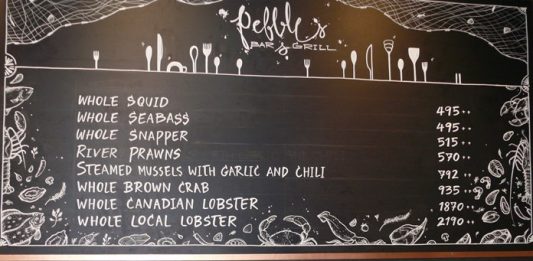 Pebbles
BAR & GRILL
WHOLE SQUID 495++
WHOLE SEABASS 495++
WHOLE SNAPPER 515++
RIVER PRAWNS 570++
STEAMED MUSSELS WITH GARLIC AND CHILI 792++
WHOLE BROWN CRAB 935++
WHOLE CANADIAN LOBSTER 1870++
WHOLE LOCAL LOBSTER 2190++